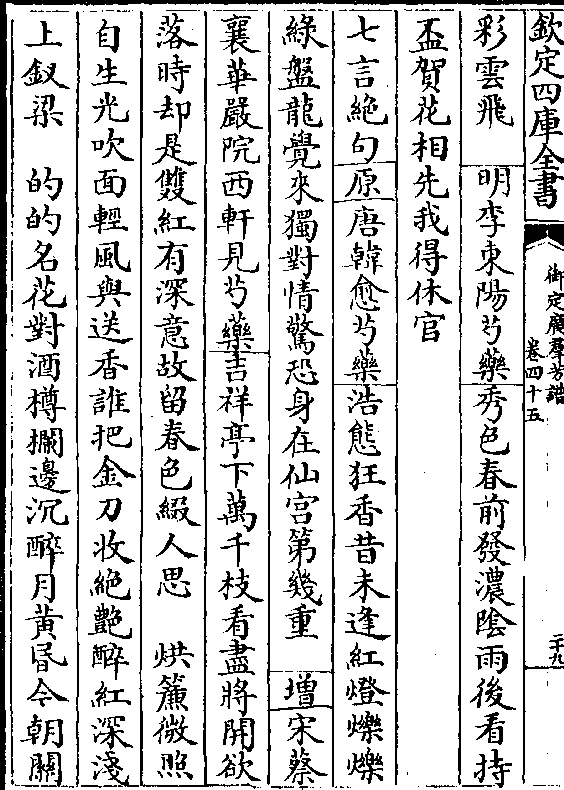 欽定四庫全書
御定廣羣芳譜
卷四十五
二十九
彩雲飛　明李東陽芍藥秀色春前發濃隂雨後看持
盃賀花相先我得休官
七言絶句原唐韓愈芍藥浩態狂香昔未逢紅燈爍爍
綠盤龍覺來獨對情驚恐身在仙宫第幾重　增宋蔡
襄華嚴院西軒見芍藥吉祥亭下萬千枝看盡將開欲
落時却是雙紅有深意故留春色綴人思　烘簾微照
自生光吹面輕風與送香誰把金刀收絶艷醉紅深淺
上釵梁　的的名花對酒樽欄邊沉醉月黃昬今朝關